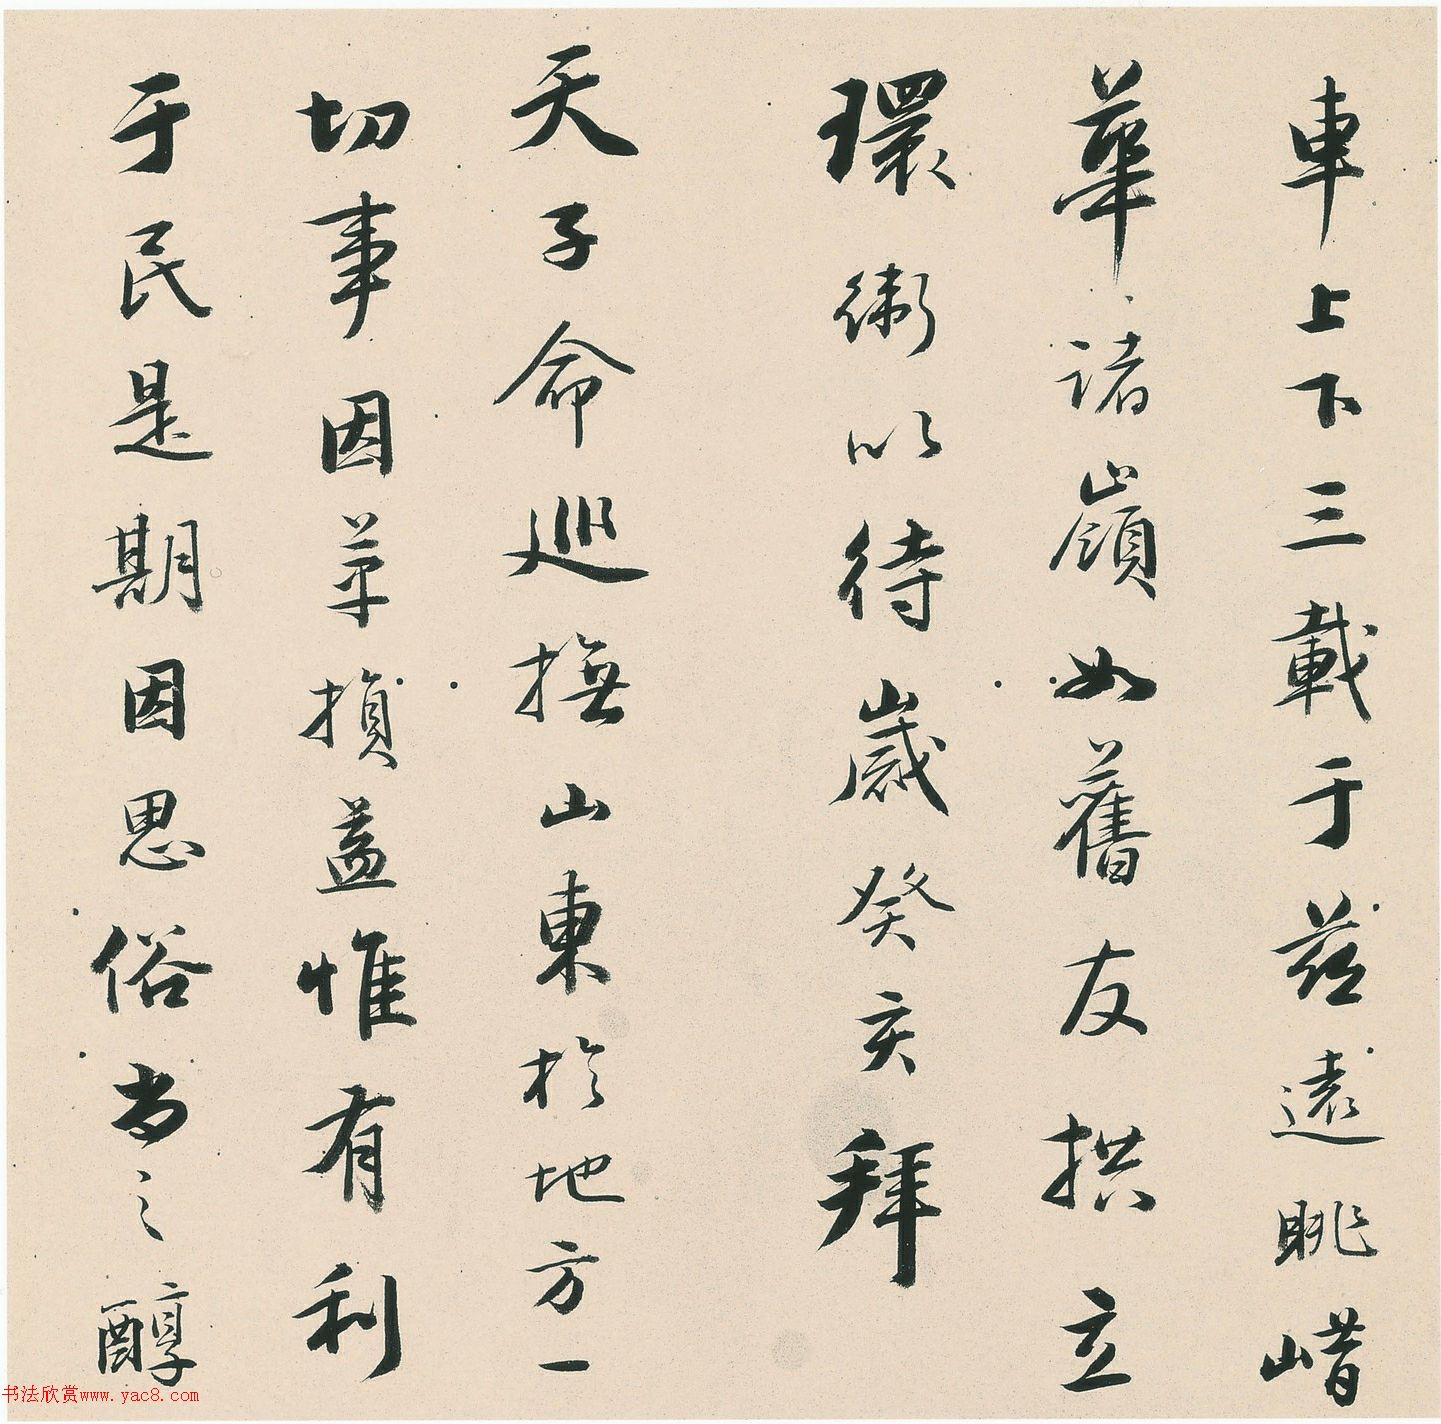 車上下三載于茲遠眺嵴
華諸嶺如舊友拱立
環衛以待歲癸亥拜
天子命巡撫山東於地方一
切事因革損益惟有利
于民是期因思俗尚之醇
书法欣赏www.yac8.com